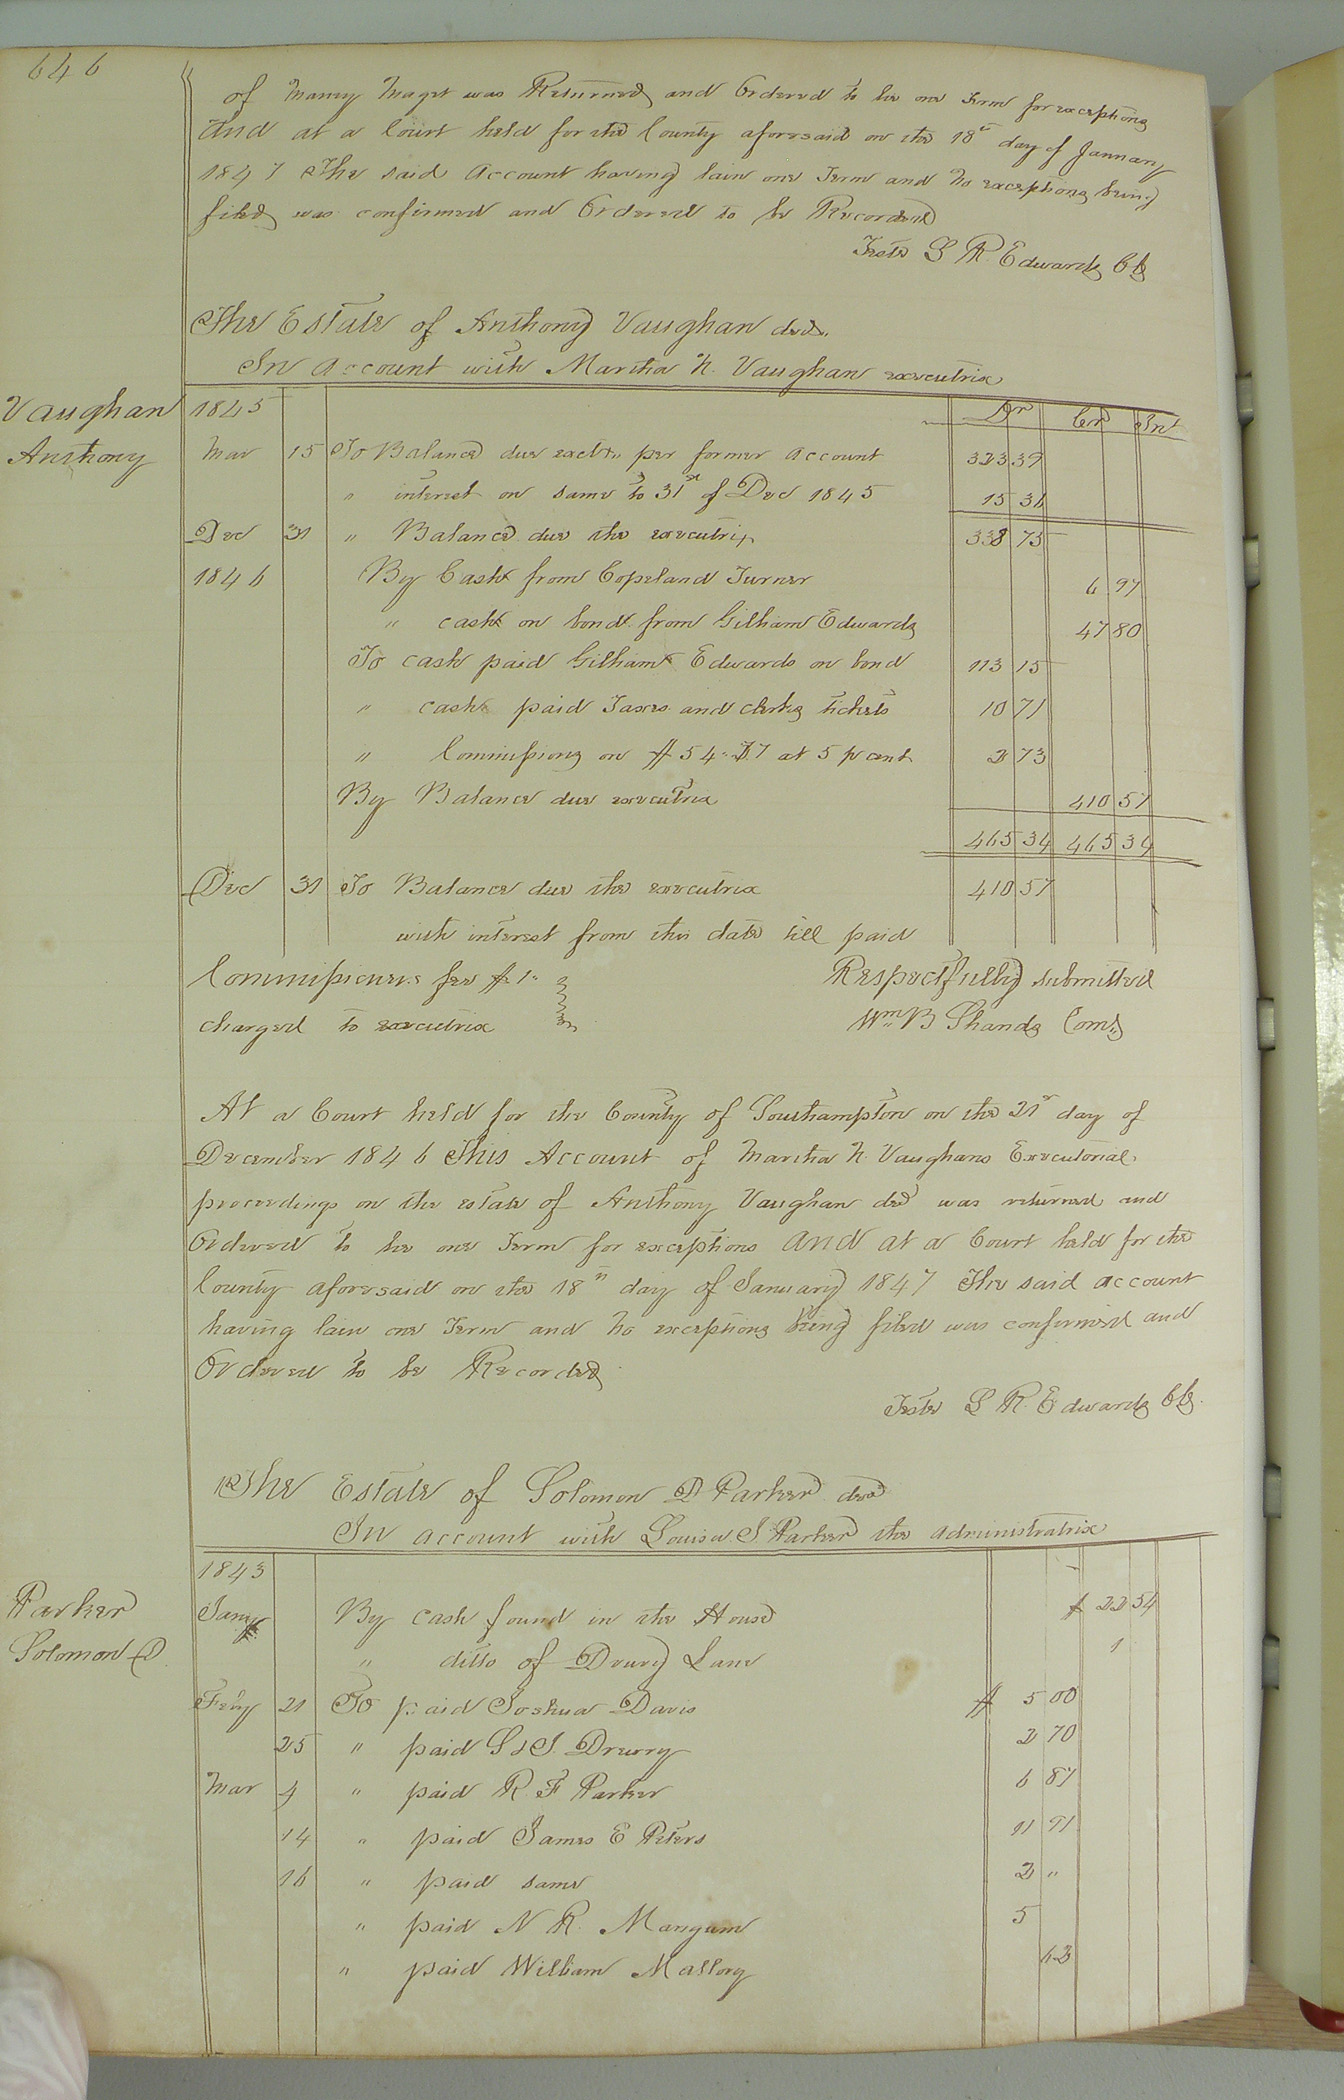 646
of Mancy Maget was Returned and Ordered to lie one Term for exceptions
And at a Court held for the County aforesaid on the 18th day of January
1847 The said Account having lain one Term and No exceptions being
filed was confirmed and Ordered to be Recorded
Teste L R Edwards Clk
The Estate of Anthony Vaughan decd.
In Account with Martha N. Vaughan executrix
Vaughan Anthony
1845 Dr Cr Int
Mar 15 To Balance due exctx per former account 323 39
" interest on same to 31st of Dec 1845 15 36
Dec 31 " Balance due the executrix 338 75
1846 By Cash from Copeland Turner 6 97
" cash on bond from Gilliam Edwards 47 80
To cash paid Gilliam Edwards on bond 113 15
" cash paid Taxes and clerks tickets 10 71
" Commissions on $54.77 at 5 p cent 2 73
By Balance due executrix 410 57
465 34 465 34
Dec 31 To Balance due the executrix 410 57
with interest from this date till paid
Commissioners fee $1" Respectfully submitted
charged to executrix Wm B Shands Coms
At a Court held for the County of Southampton on the 21st day of
December 1846 This Account of Martha N. Vaughans Executorial
proceedings on the estate of Anthony Vaughan decd was returned and
Ordered to lie one Term for exceptions And at a Court held for the
County aforesaid on the 18th day of January 1847 The said account
having lain one Term and No exceptions being filed was confirmed and
Ordered to be Recorded
Teste L R. Edwards Clk.
The Estate of Solomon D Parker decd
In account with Louisa S. Parker the administratrix
Parker Solomon D
1843
Jany By cash found in the House $ 22 54
" ditto of Drury Lane 1
Feby 21 To paid Joshua Davis $ 5 00
25 " paid S & J. Drewry 2 70
Mar 4 " paid R. F Parker 6 87
14 " paid James E Peters 11 91
16 " paid same 2 "
" paid N R. Mangum 5
" paid William Mallory 62